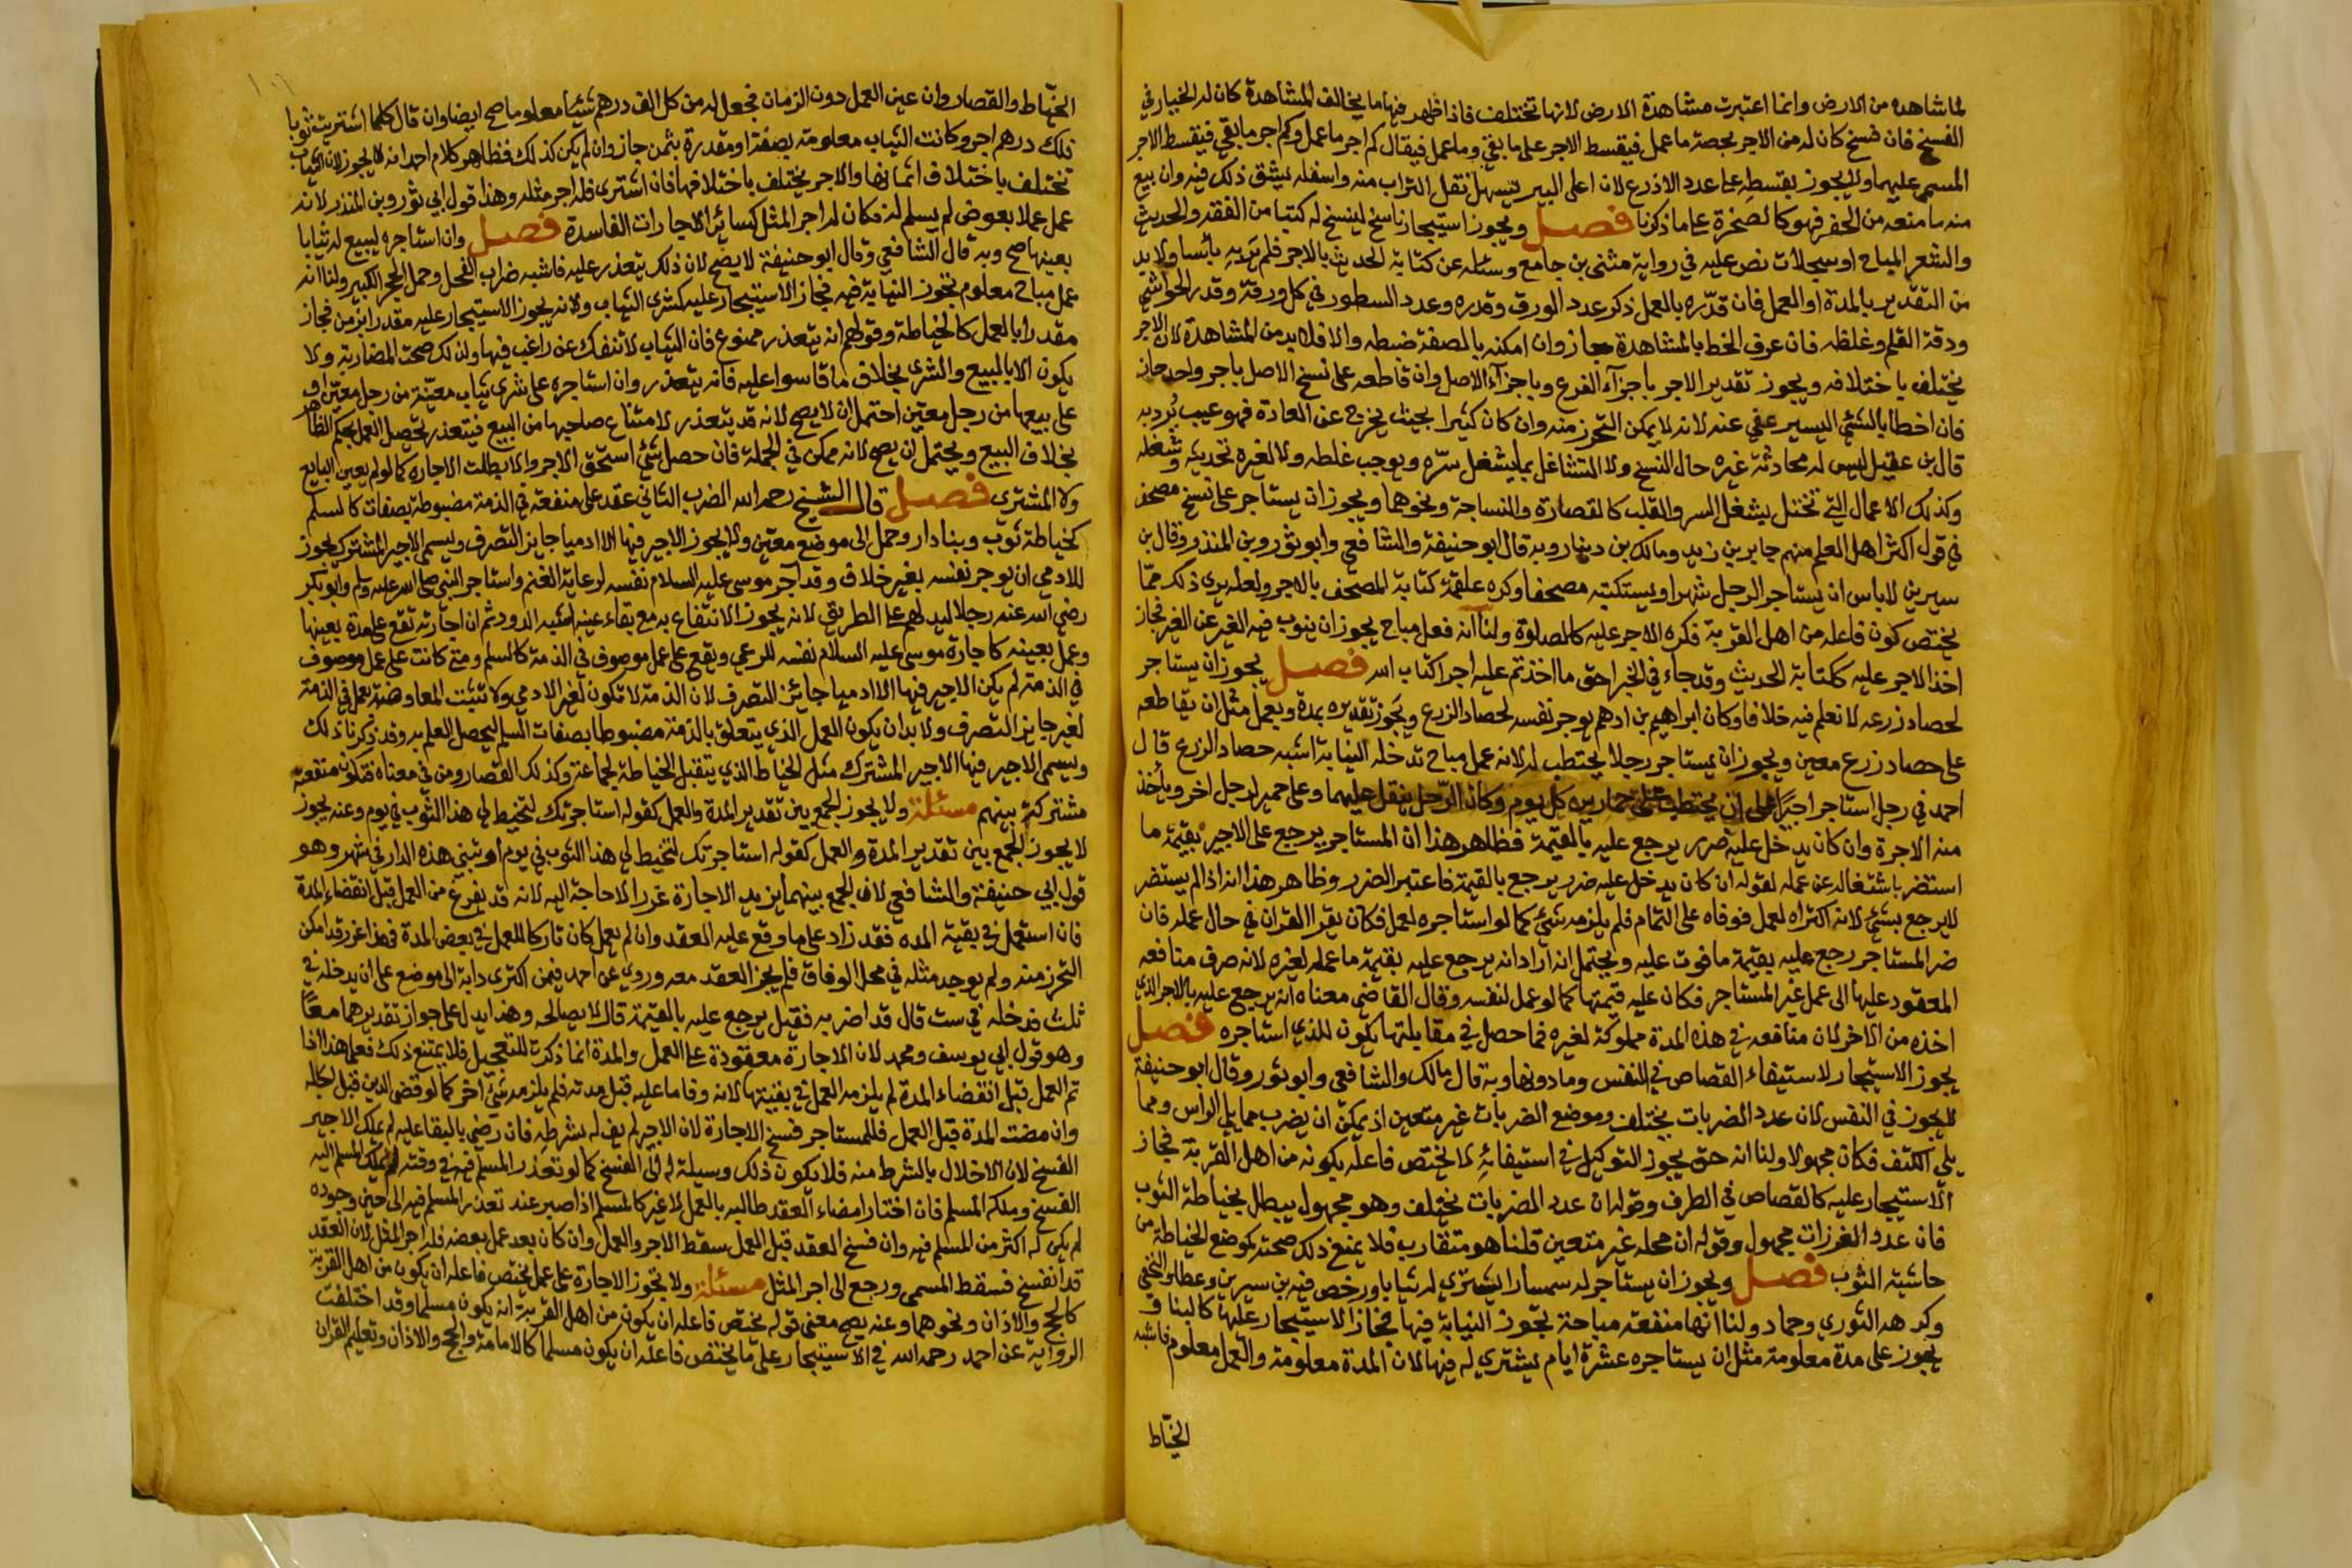 لما شاهده من الارض وانما اعتبرت مشاهدة الارض لانها تختلف فاذا ظهر فيها ما يخالف المشاهدة كان له الخيار في
الفسخ فان فسخ كان له من الاجر بحصة ما عمل فيقسط الاجر على ما بقي وما عمل فيقال كم اجر ما عمل وكم اجر ما بقي فيقسط الاجر
المسمى عليهما ولا يجوز بقسطه على عدد الاذرع لان اعلى البير يسهل نقل التراب منه واسفله يشق ذلك فيه وان نبع
منه ما منعه من الحفر فهو كالصخرة على ما ذكرنا فصل ويجوز استيجار ناسخ لينسخ له كتبا من الفقه والحديث
والشعر المباح او سجلات نص عليه في رواية مثنى بن جامع وسئله عن كتابة الحديث بالاجر فلم ير به باسا ولا بد
من التقدير بالمدة او العمل فان قدّره بالعمل ذكر عدد الورق وقدره وعدد السطور في كل ورقة وقدر الحواشي
ودقة القلم وغلظه فان عرف الخط بالمشاهدة جاز وان امكنه بالصفة ضبطه والا فلا بد من المشاهدة لان الاجر
يختلف باختلافه ويجوز تقدير الاجر باجزآء الفرع وباجزآء الاصل وان قاطعه على نسخ الاصل باجر واحد جاز
فان اخطا بالشئ اليسير عفي عنه لانه لا يمكن التحرز منه وان كان كثيرا بحيث يخرج عن العادة فهو عيب يُرد به
قال بن عقيل ليس له محادثة غيره حال النسخ ولا التشاغل بما يشغل سرّه ويوجب غلطه ولا لغيره تحديثه وشغله
وكذلك الاعمال التي تختل بشغل السر والقلب كالقصارة والنساجة ونحوهما ويجوز ان يستاجر على نسخ مصحف
في قول اكثر اهل العلم منهم جابر بن زيد ومالك بن دينار وبه قال ابو حنيفة والشافعي وابو ثور وبن المنذر وقال بن
سيرين لا باس ان يستاجر الرجل شهرا ويستكتبه مصحفا وكره علقمة كتابة المصحف بالاجر ولعله يرى ذلك ممّا
يختص كون فاعله من اهل القربة فكره الاجر عليه كالصلوة ولنا انه فعل مباح يجوز ان ينوب فيه الغير عن الغير فجاز
اخذ الاجر عليه ككتابة الحديث وقد جاء في الخبر احق ما اخذتم عليه اجرا كتاب الله فصل يجوز ان يستاجر
لحصاد زرعه لا نعلم فيه خلافا وكان ابراهيم بن ادهم يوجر نفسه لحصاد الزرع ويجوز تقديره بمدة وبعمل مثل ان يقاطعه
على حصاد زرع معين ويجوز ان يستاجر رجلا يحتطب له لانه عمل مباح تدخله النيابة اشبه حصاد الزرع قال
احمد في رجل استاجر اجيرًا على ان يحتطب على حمارين كل يوم وكان الرجل ينقل عليهما وعلى حمير لرجل اخر وياخذ
منه الاجرة وان كان يدخل عليه ضرر يرجع عليه بالقيمة فظاهر هذا ان المستاجر يرجع على الاجير بقيمة ما
استضر باشتغاله عن عمله لقوله ان كان يدخل عليه ضرر يرجع بالقيمة فاعتبر الضرر وظاهر هذا انه اذا لم يستضر
لا يرجع بشئ لانه اكتراه لعمل فوفاه على التمام فلم يلزمه شئ كما لو استاجره لعمل فكان يقرا القران في حال عمله فان
ضر المستاجر رجع عليه بقيمة ما فوت عليه ويحتمل انه اراد انه يرجع عليه بقيمة ما عمله لغيره لانه صرف منافعه
المعقود عليها الى عمل غير المستاجر فكان عليه قيمتها كما لو عمل لنفسه وقال القاضي معناه انه يرجع عليه بالاجر الذي
اخذه من الاخر لان منافعه في هذه المدة مملوكة لغيره فما حصل في مقابلتها يكون للذي استاجره فصل
يجوز الاستيجار لاستيفاء القصاص في النفس وما دونها وبه قال مالك والشافعي وابو ثور وقال ابو حنيفة
لا يجوز في النفس لان عدد الضربات يختلف وموضع الضربات غير متعين اذ يمكن ان يضرب مما يلي الراس ومما
يلي الكتف فكان مجهولا ولنا انه حق يجوز التوكيل في استيفائه لا يختص فاعله بكونه من اهل القربة فجاز
الاستيجار عليه كالقصاص في الطرف وقوله ان عدد الضربات يختلف وهو مجهول يبطل بخياطة الثوب
فان عدد الغرزات مجهول وقوله ان محله غير متعين قلنا هو متقارب فلا يمنع ذلك صحته كموضع الخياطة من
حاشية الثوب فصل ويجوز ان يستاجر له سمسارا ليشتري له ثيابا ورخص فيه بن سيرين وعطا والنخعي
وكرهه الثوري وحماد ولنا انها منفعة مباحة تجوز النيابة فيها فجاز الاستيجار عليها كالبنا و
يجوز على مدة معلومة مثل ان يستاجره عشرة ايام يشتري له فيها لان المدة معلومة والعمل معلوم فاشبه
الخيّاط
الخيّاط والقصار وان عين العمل دون الزمان فجعل له من كل الف درهم شيئا معلوما صح ايضا وان قال كلما اشتريت ثوبا
فلك درهم اجر وكانت الثياب معلومة بصفة او مقدرة بثمن جاز وان لم يكن كذلك فظاهر كلام احمد انه لا يجوز لان الثياب
تختلف باختلاف اثمانها والاجر يختلف باختلافها فان اشترى فله اجر مثله وهذا قول ابي ثور وبن المنذر لانه
عمل عملا بعوض لم يسلم له فكان له اجر المثل كسائر الاجارات الفاسدة فصل وان استاجره ليبيع له ثيابا
بعينها صح وبه قال الشافعي وقال ابو حنيفة لا يصح لان ذلك يتعذر عليه فاشبه ضراب الفحل وحمل الحجر الكبير ولنا انه
عمل مباح معلوم تجوز النيابة فيه فجاز الاستيجار عليه كشرى الثياب ولانه يجوز الاستيجار عليه مقدرا بزمن فجاز
مقدرا بالعمل كالخياطة وقولهم انه يتعذر ممنوع فان الثياب لا تنفك عن راغب فيها ولذلك صحت المضاربة ولا
يكون الا بالبيع والشرى بخلاف ما قاسوا عليه فانه يتعذر وان استاجره على شرى ثياب معيّنة من رجل معيّن او
على بيعها من رجل معيّن احتمل ان لا يصح لانه قد يتعذر لامتناع صاحبها من البيع فيتعذر تحصيل العمل بحكم الظاهر
بخلاف البيع ويحتمل ان يصح لانه ممكن في الجملة فان حصل شئ استحق الاجر والا بطلت الاجارة كما لو لم يعين البايع
ولا المشتري فصل قال الشيخ رحمه الله الضرب الثاني عقد على منفعة في الذمة مضبوطة بصفات كالسلم
كخياطة ثوب وبنا دار وحمل الى موضع معيّن ولا يجوز الاجير فيها الا ادميا جايز التصرف ويسمى الاجير المشترك يجوز
للادمي ان يوجر نفسه بغير خلاف وقد آجر موسى عليه السلام نفسه لرعاية الغنم واستاجر النبي صلى الله عليه وسلم وابو بكر
رضي الله عنه رجلا ليدلهم على الطريق لانه يجوز الانتفاع به مع بقاء عينه اشبه الدور ثم ان اجارته تقع على مدة بعينها
وعمل بعينه كاجارة موسى عليه السلام نفسه للرعي ويقع على عمل موصوف في الذمة كالسلم ومتى كانت على عمل موصوف
في الذمة لم يكن الاجير فيها الا ادميا جايز التصرف لان الذمة لا تكون لغير الادمي ولا تثبت المعاوضة بعمل في الذمة
لغير جايز التصرف ولا بد ان يكون العمل الذي يتعلق بالذمة مضبوطا بصفات السلم ليحصل العلم به وقد ذكرنا ذلك
ويسمى الاجير فيها الاجير المشترك مثل الخياط الذي يتقبل الخياطة لجماعة وكذلك القصار ومن في معناه فتكون منفعته
مشتركة بينهم مسئلة ولا يجوز الجمع بين تقدير المدة والعمل كقوله استاجرتك لتخيط لي هذا الثوب في يوم وعنه يجوز
لا يجوز الجمع بين تقدير المدة والعمل كقوله استاجرتك لتخيط لي هذا الثوب في يوم او تبني هذه الدار في شهر وهو
قول ابي حنيفة والشافعي لان الجمع بينهما يزيد الاجارة غررا لا حاجة اليه لانه قد يفرغ من العمل قبل انقضاء المدة
فان استعمل في بقية المده فقد زاد على ما وقع عليه العقد وان لم يعمل كان تاركا للعمل في بعض المدة فهذا غرر قد امكن
التحرز منه ولم يوجد مثله في محل الوفاق فلم يجز العقد معه وروي عن احمد فيمن اكترى دابة الى موضع على ان يدخله في
ثلث فدخله في ست قال قد اضر به فقيل يرجع عليه بالقيمة قال لا يصالحه وهذا يدل على جواز تقديرهما معًا
وهو قول ابي يوسف ومحمد لان الاجارة معقودة على العمل والمدة انما ذكرت للتعجيل فلا يمتنع ذلك فعلى هذا اذا
تم العمل قبل انقضاء المدة لم يلزمه العمل في بقيتها لانه وفا ما عليه قبل مدته فلم يلزمه شئ اخر كما لو قضى الدين قبل اجله
وان مضت المدة قبل العمل فللمستاجر فسخ الاجارة لان الاجير لم يف له بشرطه فان رضي بالبقا عليه لم يملك الاجير
الفسخ لان الاخلال بالشرط منه فلا يكون ذلك وسيلة له الى الفسخ كما لو تعذر المسلم فيه في وقته لم يملك المسلم اليه
الفسخ وملكه المسلم فان اختار امضاء العقد طالبه بالعمل لا غير كالمسلم اذا صبر عند تعذر المسلم فيه الى حين وجوده
لم يكن له اكثر من المسلم فيه وان فسخ العقد قبل العمل سقط الاجر والعمل وان كان بعد عمل بعضه فله اجر المثل لان العقد
قد انفسخ فسقط المسمى ورجع الى اجر المثل مسئلة ولا تجوز الاجارة على عمل يختص فاعله ان يكون من اهل القربة
كالحج والاذان ونحوهما وعنه يصح معنى قوله يختص فاعله ان يكون من اهل القربة انه يكون مسلما وقد اختلفت
الرواية عن احمد رحمه الله في الاستيجار على ما يختص فاعله ان يكون مسلما كالامامة والحج والاذان وتعليم القران